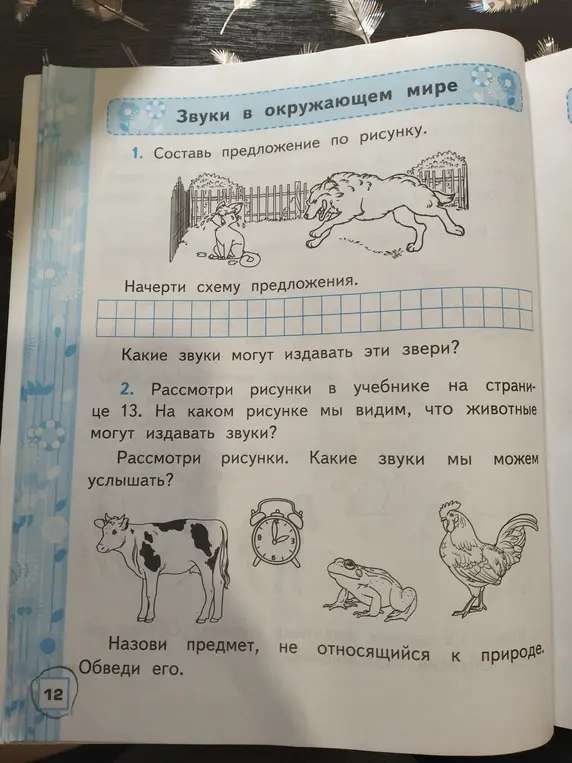 Звуки в окружающем мире
1. Составь предложение по рисунку.
Начерти схему предложения.
Какие звуки могут издавать эти звери?
2. Рассмотри рисунки в учебнике на страни-
це 13. На каком рисунке мы видим, что животные
могут издавать звуки?
Рассмотри рисунки. Какие звуки мы можем
услышать?
Назови предмет, не относящийся к природе.
Обведи его.
12